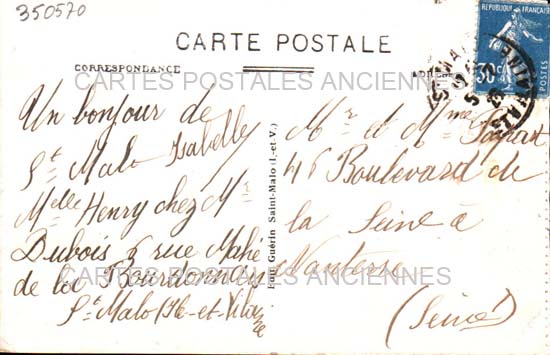 350570
CARTE POSTALE
CORRESPONDANCE
ADRESSE
RÉPUBLIQUE FRANÇAISE
30c
CARTES POSTALES ANCIENNES
Un bonjour de
St Malo Isabelle
Melle Henry chez Mr
Dubois 6 rue Mahé
de la Bourdonnay
St Malo (Ile-et-Vilaine
Font Guérin Saint-Malo (I.-et-V.)
Mr et Mme
46 Boulevard de
la Seine à
Nanterre
(Seine)
CARTES POSTALES ANCIENNES